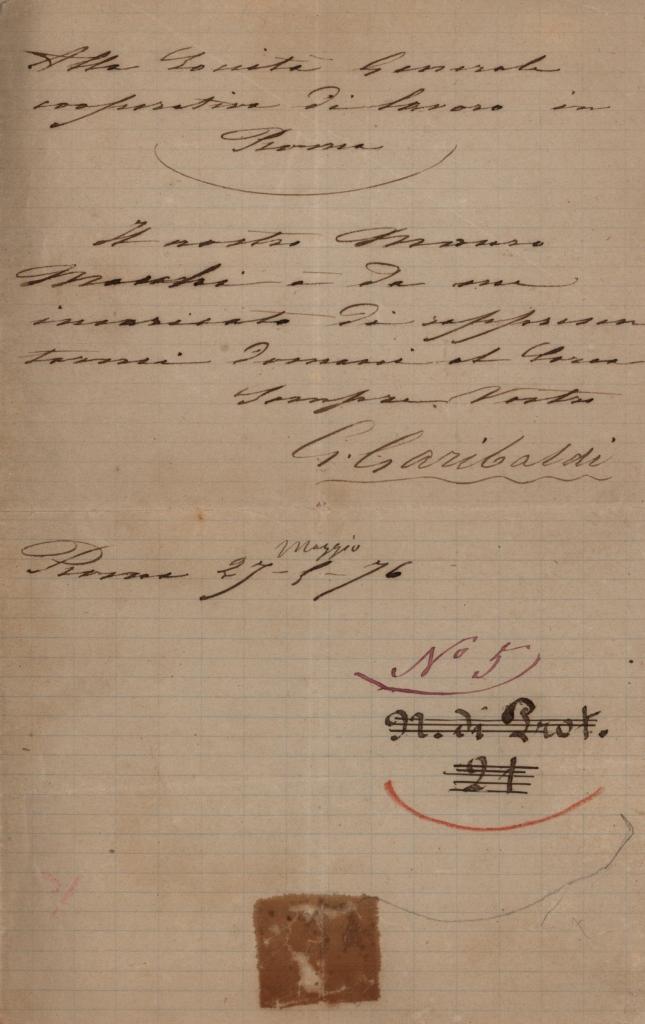 Alla Società Generale
cooperativa di lavoro in
Roma
Il nostro Mauro
Macchi è da me
incaricato di rappresen
tarmi domani
Sempre Vostro
G. Garibaldi
Maggio
Roma 27-5-76
No 5
N. di Prot.
21